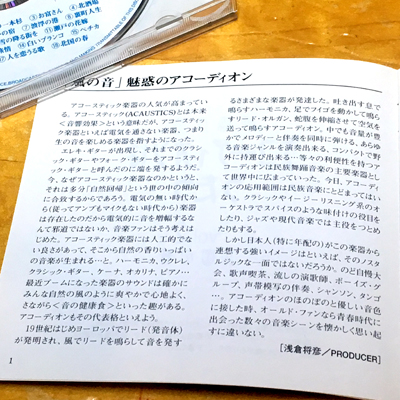 一本杉
⑤お富さん
⑥北酒場
の宿
⑨波浮の港
⑩裏町人生
雪の降る街を
⑬瀬戸の花嫁
慕情
⑮白いブランコ
⑯ペチカ
⑰人を恋うる歌
⑱北国の春
「風の音」魅惑のアコーディオン
アコースティック楽器の人気が高まってい
る。アコースティック(ACAUSTICS)とは本来
<音響効果>という意味だが、アコースティッ
ク楽器といえば電気を通さない楽器、つまり
生の音を楽しめる楽器を指すようになった。
エレキ・ギターが出現し、それまでのクラシ
ック・ギターやフォーク・ギターをアコーステ
ィックと呼んだのに端を発するようだが、
今、なぜアコースティック楽器なのかというと、
それは多分「自然回帰」という世の中の傾向
に合致するからであろう。電気の無い時代か
ら(従ってアンプもマイクもない時代から)楽器
は存在したのだから電気的に音を増幅するな
んて邪道ではないか、音楽ファンはそう考えは
じめた。アコースティック楽器には人工的でな
い良さがあって、そこから自然の香りいっぱい
の音楽が生まれる…と。ハーモニカ、ウクレレ、
クラシック・ギター、ケーナ、オカリナ、ピアノ…
最近ブームになった楽器のサウンドは確かに
みんな自然の風のように爽やかで心地よく、
さながら＜音の健康食＞といった趣がある。
アコーディオンもその代表格といえよう。
19世紀はじめヨーロッパでリード(発音体)
が発明され、風でリードを鳴らして音を発す
るさまざまな楽器が発達した。吐き出す息で
鳴らすハーモニカ、足でフイゴを動かして鳴ら
すリード・オルガン、蛇腹を伸縮させて空気を
送って鳴らすアコーディオン。中でも音量が豊
かでメロディーと伴奏を同時に弾ける、あらゆ
る音楽ジャンルを演奏出来る、コンパクトで野
外に持運び出来る…等々の利便性を持つア
コーディオンは民族舞踊音楽の主要楽器とし
て世界中に広まっていった。今日、アコーディ
オンの応用範囲は民族音楽にとどまってはい
ない。クラシックやイージーリスニング系のオ
ーケストラでスパイスのような味付けの役目を
したり、ジャズや現代音楽では主役をつとめ
たりもする。
しかし日本人(特に年配の)がこの楽器から
連想する強いイメージはといえば、そのノスタ
ルジックな一面ではないだろうか。のど自慢大
会、歌声喫茶、流しの演歌師、ボーイズ・グ
ループ、声帯模写の伴奏、シャンソン、タンゴ
…。アコーディオンのほのぼのと優しい音色
に接した時、オールド・ファンなら青春時代に
出会った数々の音楽シーンを懐かしく思い起
すに違いない。
[浅倉将彦/PRODUCER]
1